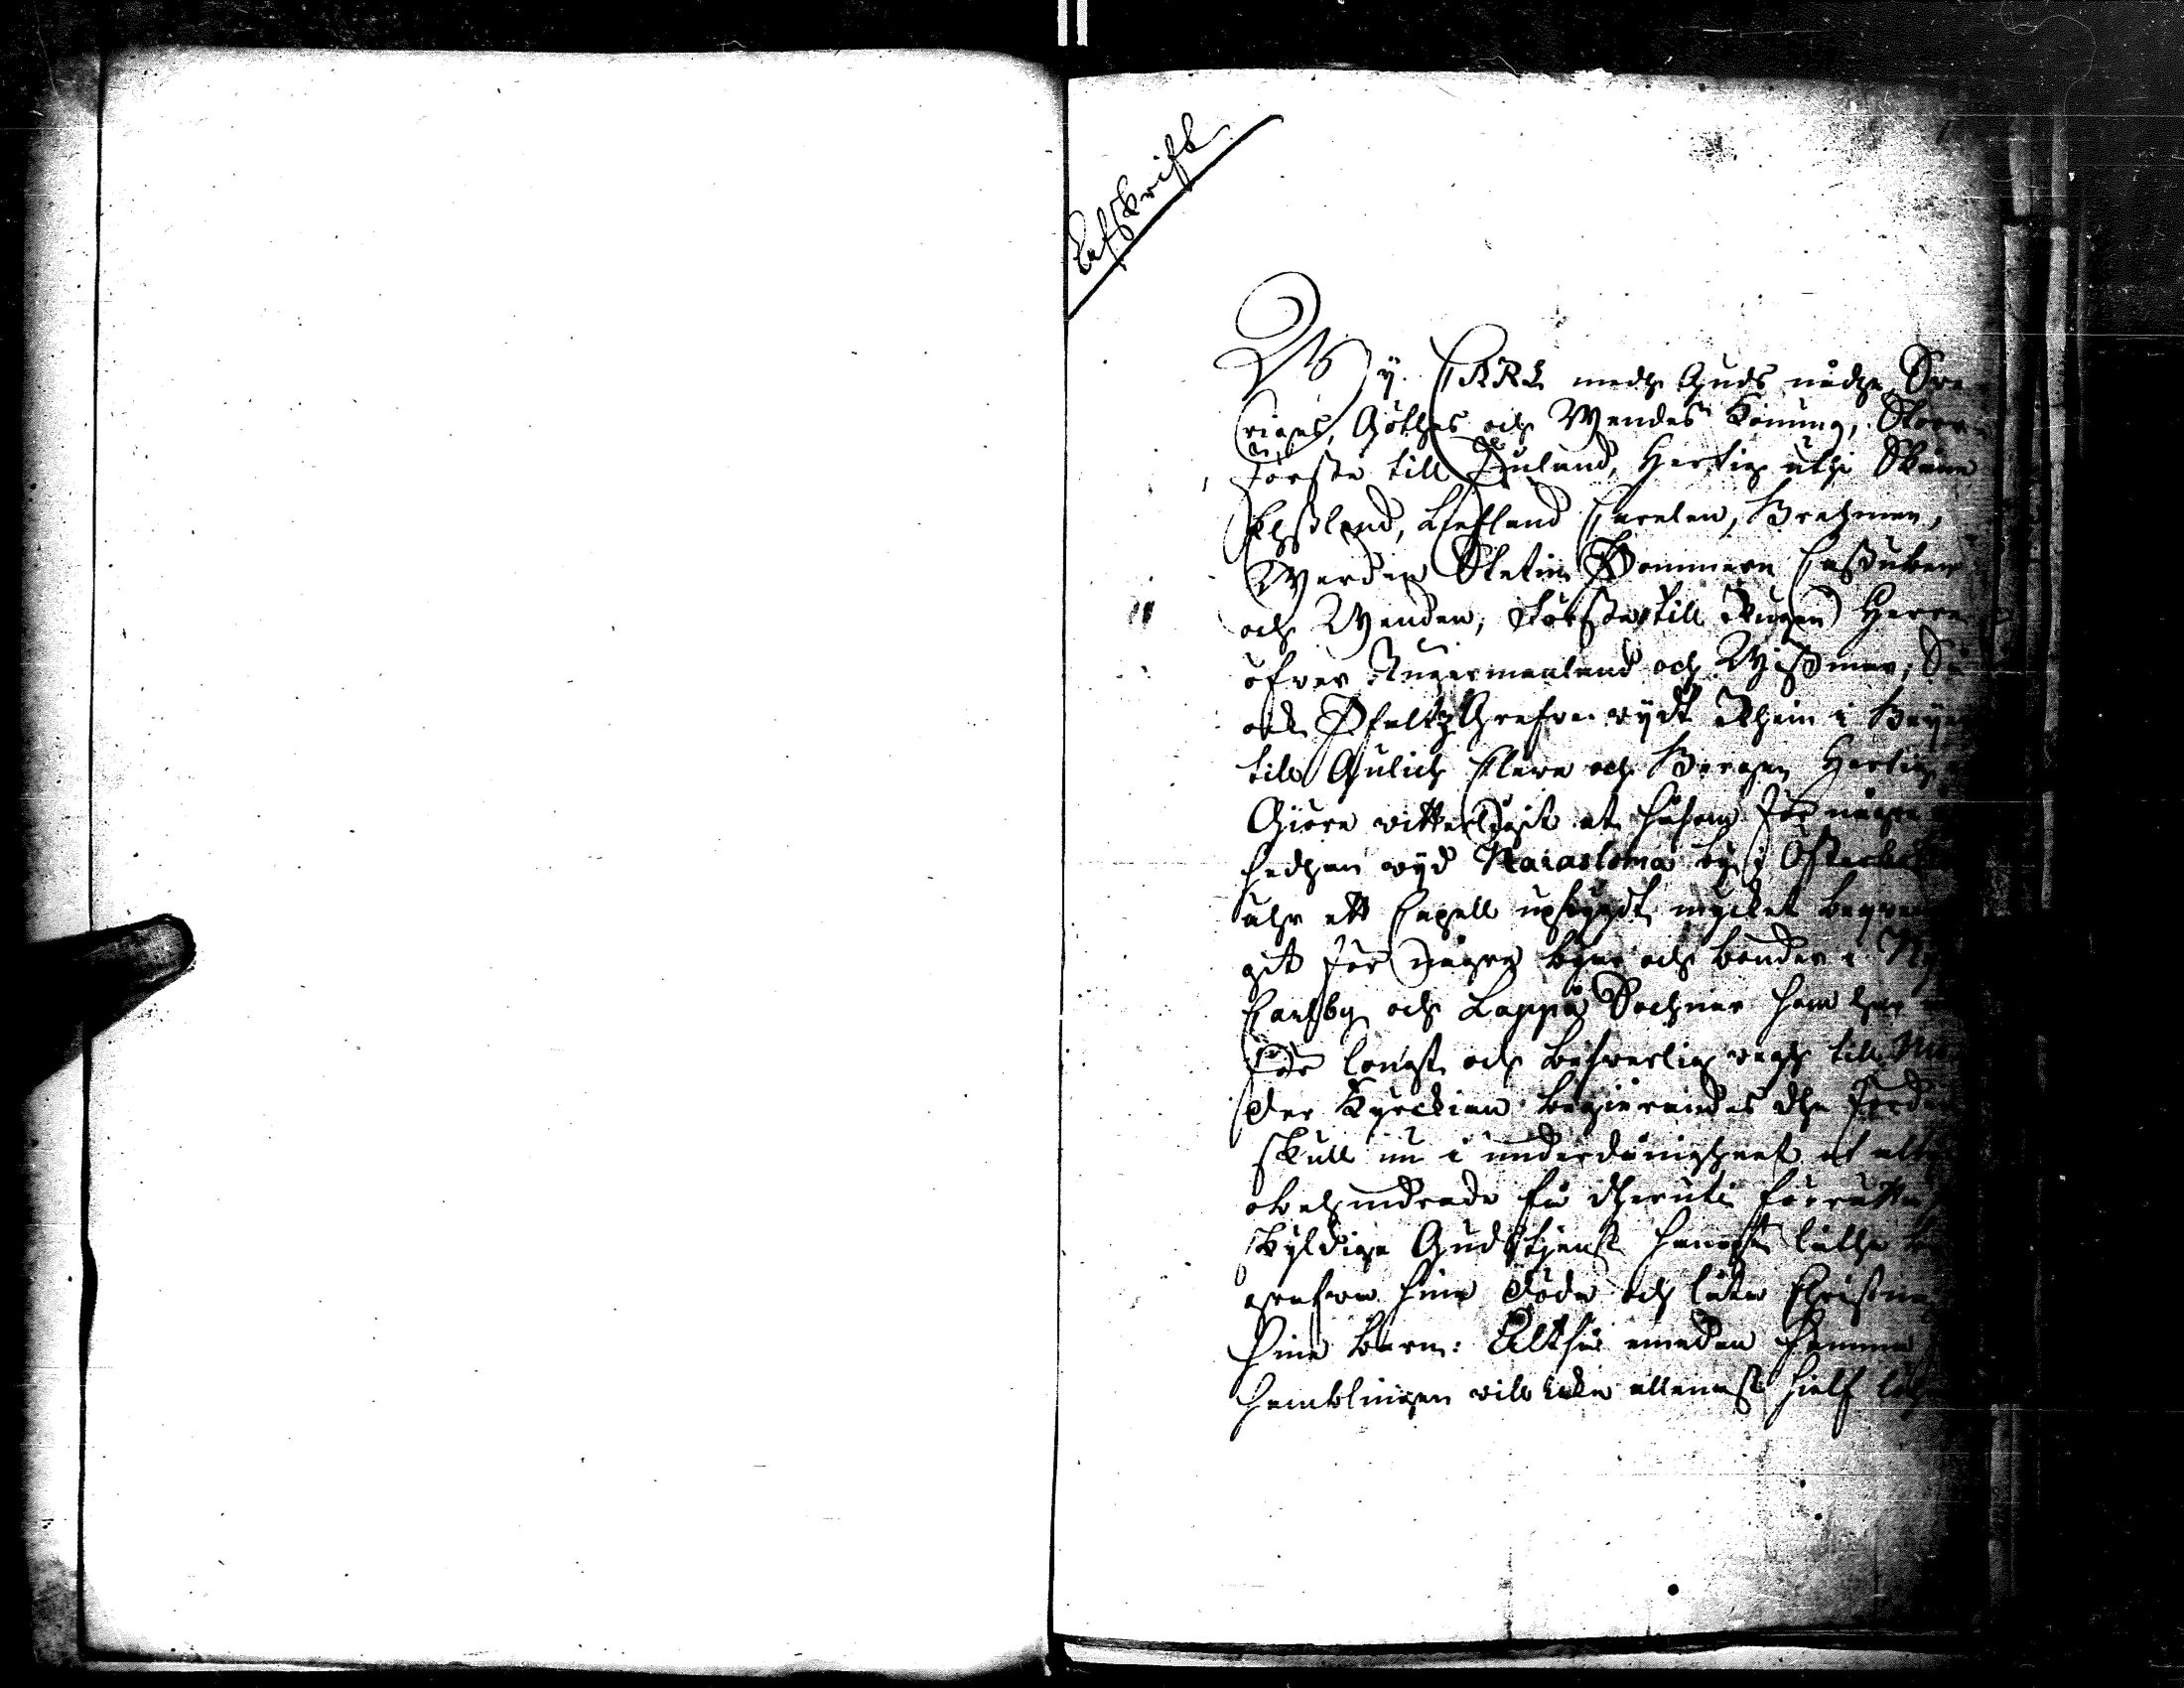 Afskrifft
Wy CARL medh Guds nådhe Swe-
riges, Göthes och Wendes Konung, Stoor-
Förste till Finland, Hertig uthi Skåne
Ehstland, Liefland Carelen, Brehmen,
Werden Stetin Pommern Cassuben
och Wenden, Förste till Rügen Herre
öfver Ingermanland och Wissmar, Så
och Pfaltz Grefve wydt Rhein i Beyern
till Gülich Cleve och Bergen Hertig
Giöre witterligit at såsom för någre
sedhan wyd Karasloma by i Österbotn
ähr ett Capell upbygdt mycket beqwem
git för någre byar och bönder i Ny
Carlby och Lappo Sochner som har
för långt och beswerlig wegh till Mo
der Kyrckian begiärandes dhe fördenn
skull nu i underdånigheet at alt
obehindrade få dheruti förrätta
skyldige Gudztjenst sampt låthe be
grafva sine döde och låta Christna
sine barn: Altså emedan samma